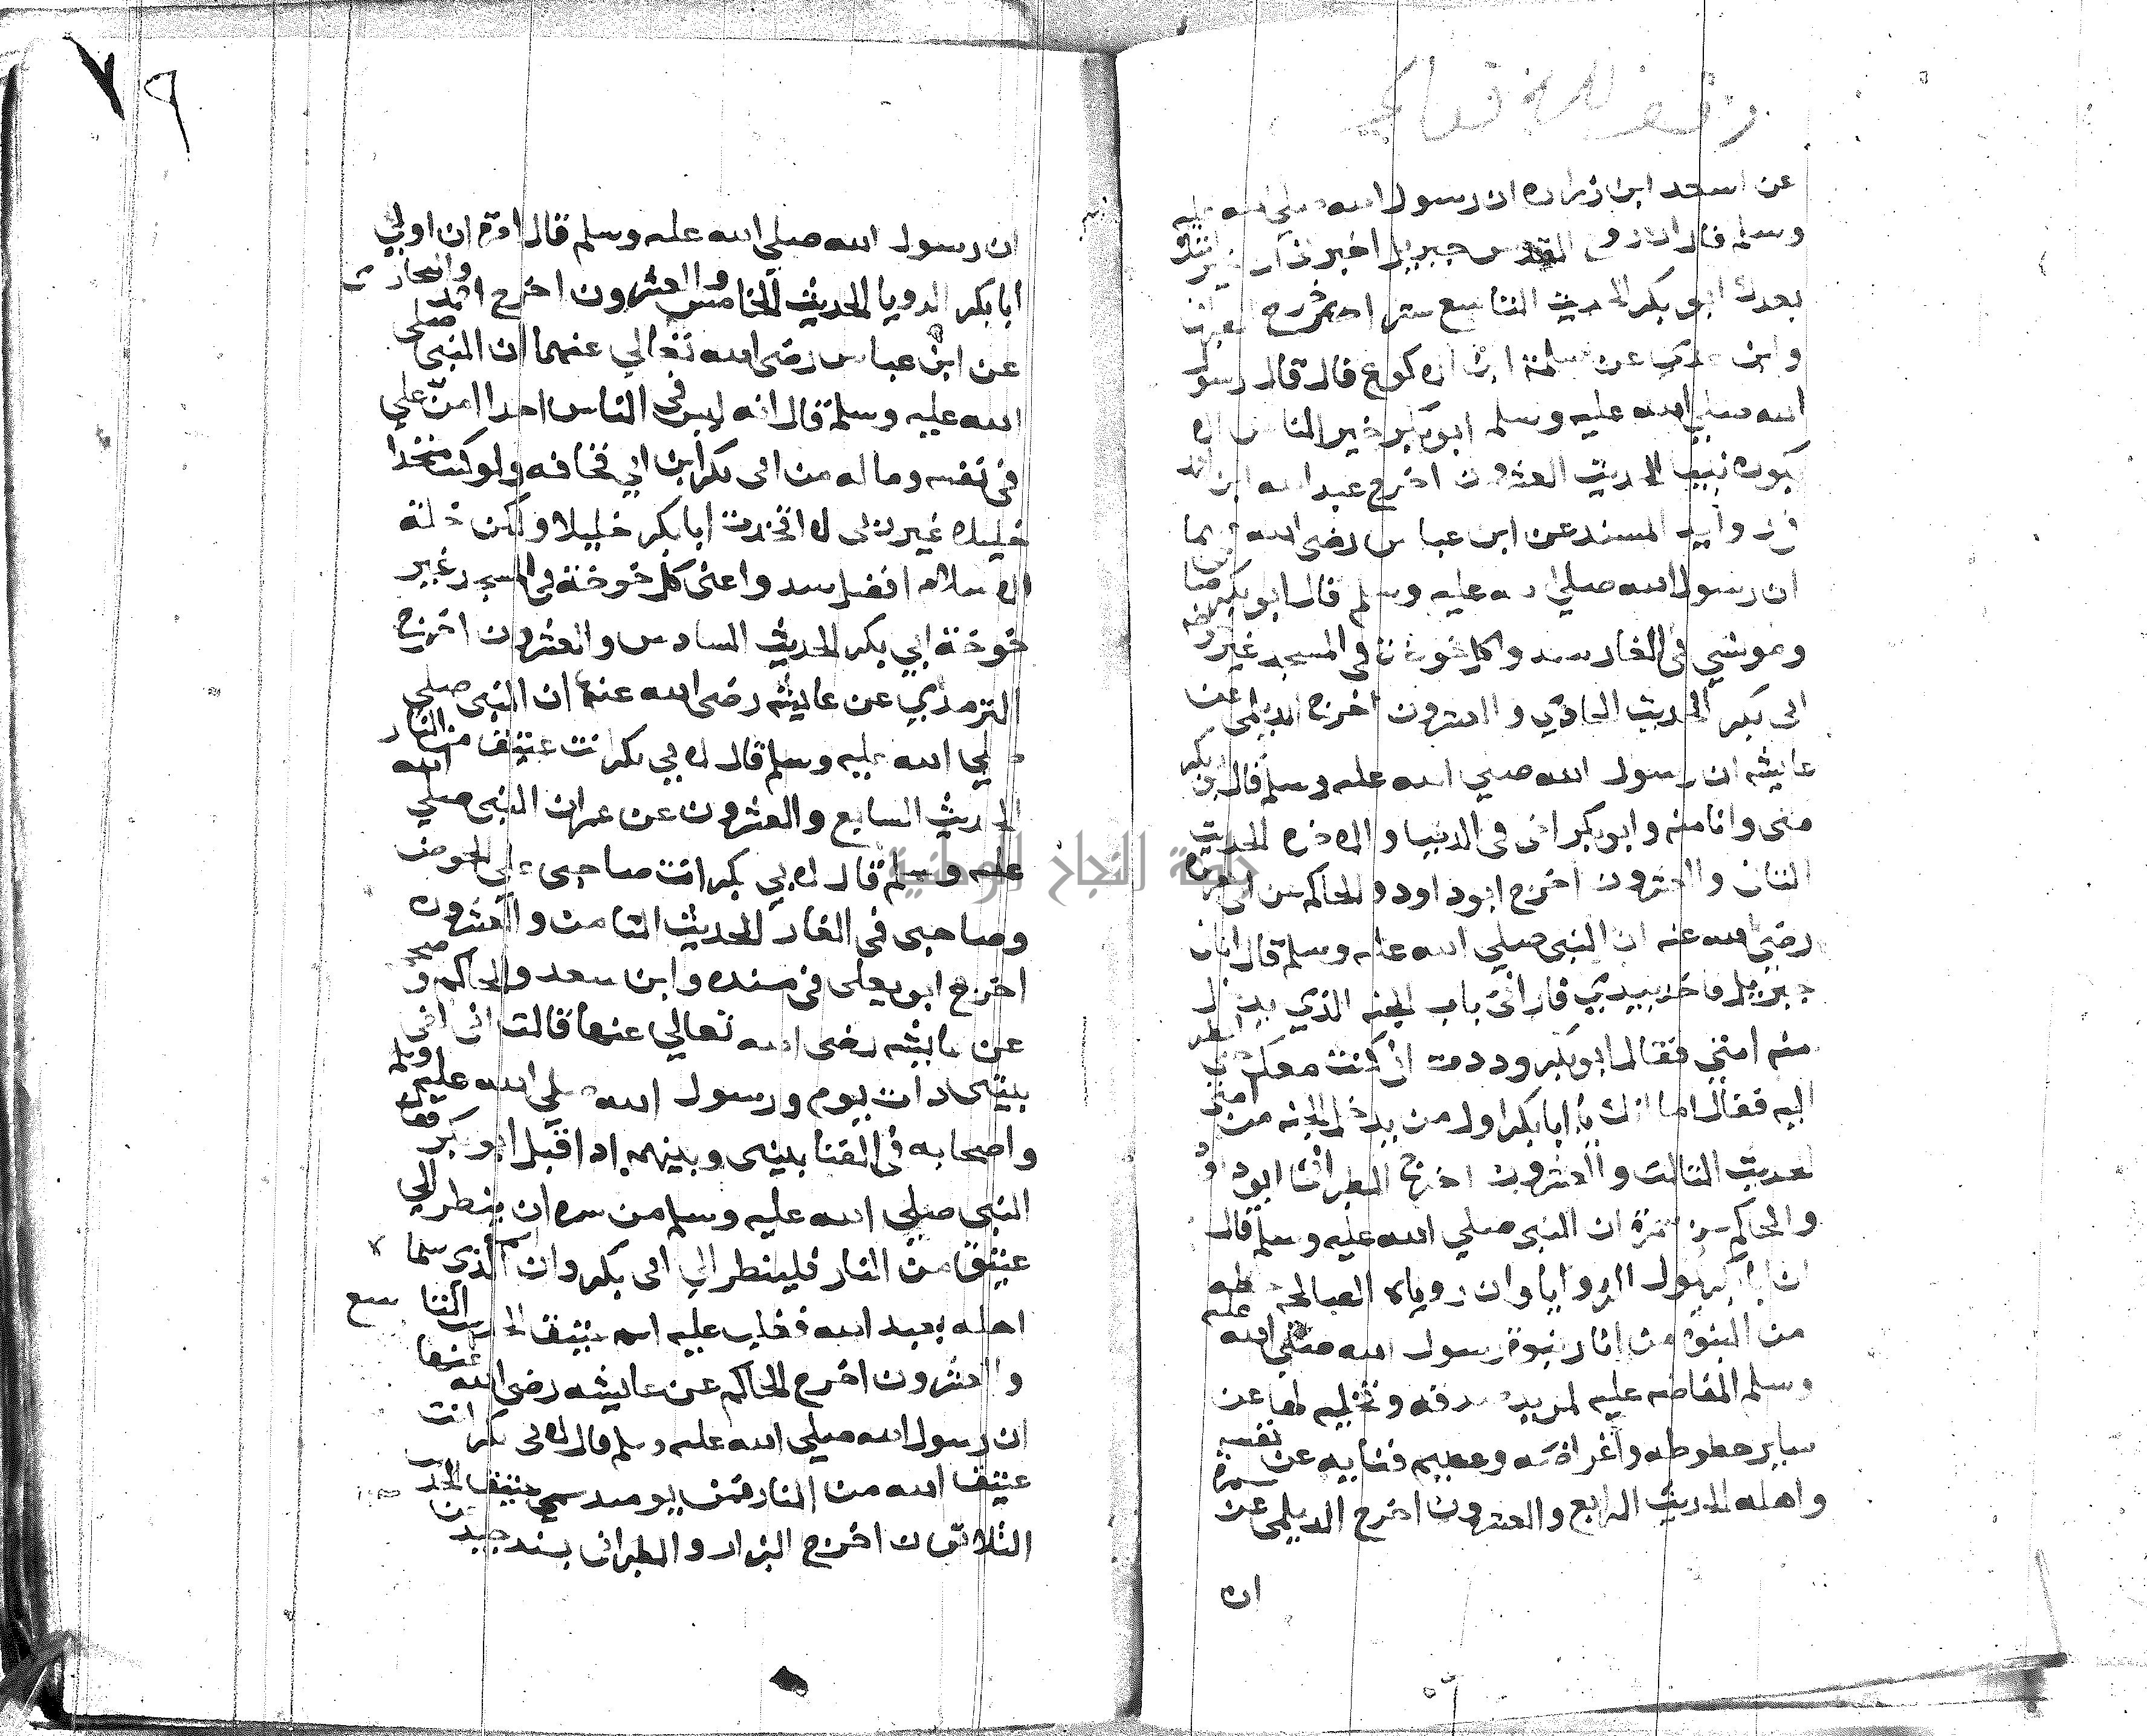 وقف لله تعالى
عن اسعد ابن زراره ان رسول الله صلي الله عليه
وسلم قال ان روح القدس جبريل اخبرني ان خير امتك
بعدك ابو بكر الحديث التاسع عشر اخرج الطبراني
وابن عدي عن سلمة ابن الاكوع قال قال رسول
الله صلي الله عليه وسلم ابو بكر خير الناس الا
يكون نبيا الحديث العشرون اخرج عبد الله ابن احمد
في زوايد المسند عن ابن عباس رضى الله عنهما
ان رسول الله صلي الله عليه وسلم قال ابو بكر صاحبي
ومونسي في الغار سدوا كل خوخة في المسجد غير خوخة
ابى بكر الحديث الحادي والعشرون اخرج الديلمى عن
عايشه ان رسول الله صلي الله عليه وسلم قال ابو بكر
منى وانا منه وابو بكر اخى فى الدنيا والاخره الحديث
الثانى والعشرون اخرج ابو داود والحاكم عن ابى هريرة
رضى الله عنه ان النبى صلي الله عليه وسلم قال اتانى
جبريل فاخذ بيدي فارانى باب الجنه الذي يدخل
منه امتى فقال ابو بكر وددت انى كنت معك حتى انظر
اليه فقال اما انك يا ابا بكر اول من يدخل الجنه من امتى
الحديث الثالث والعشرون اخرج الطبرانى ابو داود
والحاكم عن سمرة ان النبى صلي الله عليه وسلم قال
ان ابا بكر يول الرويا وان روياه الصالحه حظه
من النبوة من اثار نبوة رسول الله صلي الله عليه
وسلم المفاضه عليه لمزيد صدقه وتخليه لها عن
ساير حظوظه واغراضه وعظيم فنايه عن نفسه
واهله الحديث الرابع والعشرون اخرج الديلمى عن سمرة
ان
٧٩
ان رسول الله صلي الله عليه وسلم قال امرت ان اولي
ابا بكر الرويا الحديث الخامس والعشرون اخرج احمد والبخارى
عن ابن عباس رضى الله تعالي عنهما ان النبى صلى
الله عليه وسلم قال انه ليس فى الناس احدا امنّ علي
فى نفسه وماله من ابى بكر ابن ابي قحافه ولو كنت متخذا
خليلا غير ربى لاتخذت ابا بكر خليلا ولكن خلة
الاسلام افضل سدوا عنى كل خوخة فى المسجد غير
خوخة ابي بكر الحديث السادس والعشرون اخرج
الترمذي عن عايشه رضى الله عنها ان النبى صلي
صلي الله عليه وسلم قال لابي بكر انت عتيق من النار
الحديث السابع والعشرون عن عمر ان النبى صلي الله
عليه وسلم قال لابي بكر انت صاحبى على الحوض
وصاحبى فى الغار الحديث الثامن والعشرون
اخرج ابو يعلى فى مسنده وابن سعد والحاكم وصححه
عن عايشه رضى الله تعالي عنها قالت انى لفى
بيتى ذات يوم ورسول الله صلي الله عليه وسلم
واصحابه فى الفنا بينى وبينهم اذ اقبل ابو بكر فقال
النبى صلي الله عليه وسلم من سره ان ينظر الي
عتيق من النار فلينظر الي ابى بكر وان اسمه الذي سماه
اهله لعبد الله فغلب عليه اسم عتيق الحديث التاسع
والعشرون اخرج الحاكم عن عايشه رضى الله عنها
ان رسول الله صلي الله عليه وسلم قال لابى بكر انت
عتيق الله من النار فمن يوميذ سمي عتيق الحديث
الثلاثون اخرج البزار والطبرانى بسند جيد عن
جامعة النجاح الوطنية